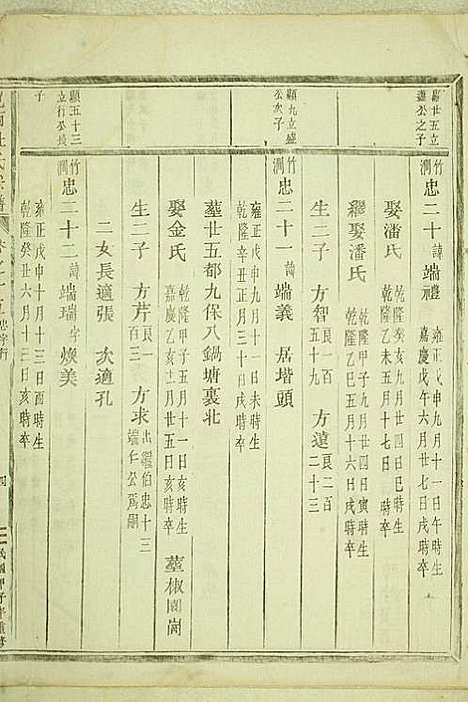 顯廿五立
盡公之子
竹
澗
忠二十諱端禮
雍正戊申九月十一日午時生
嘉慶戊午六月廿七日戌時卒
娶潘氏
乾隆癸亥九月廿四日巳時生
乾隆乙未五月十七日 時卒
繼娶潘氏
乾隆甲子十月廿四日寅時生
乾隆乙巳五月十六日戌時卒
顯九立盛
公次子
竹
澗
忠二十一諱端義 居塔頭
雍正戊申九月十一日未時生
乾隆辛丑正月三十日戌時卒
生二子 方智
良一百
五十九
方遠
良二百
二十三
葬廿五都九保八鍋塘裏北
娶金氏
乾隆甲子五月十一日亥時生
嘉慶乙亥十二月廿五日亥時卒
葬椒園崗
生二子 方芹
良一
百三
方求
出繼伯忠十三
端仁公爲嗣
二女長適張 次適孔
顯五十三
立行公長
子
竹
澗
忠二十二諱端瑞字煥美
雍正戊申十月十三日酉時生
乾隆癸丑六月十三日亥時卒
忠字行
四
民國甲子年重修